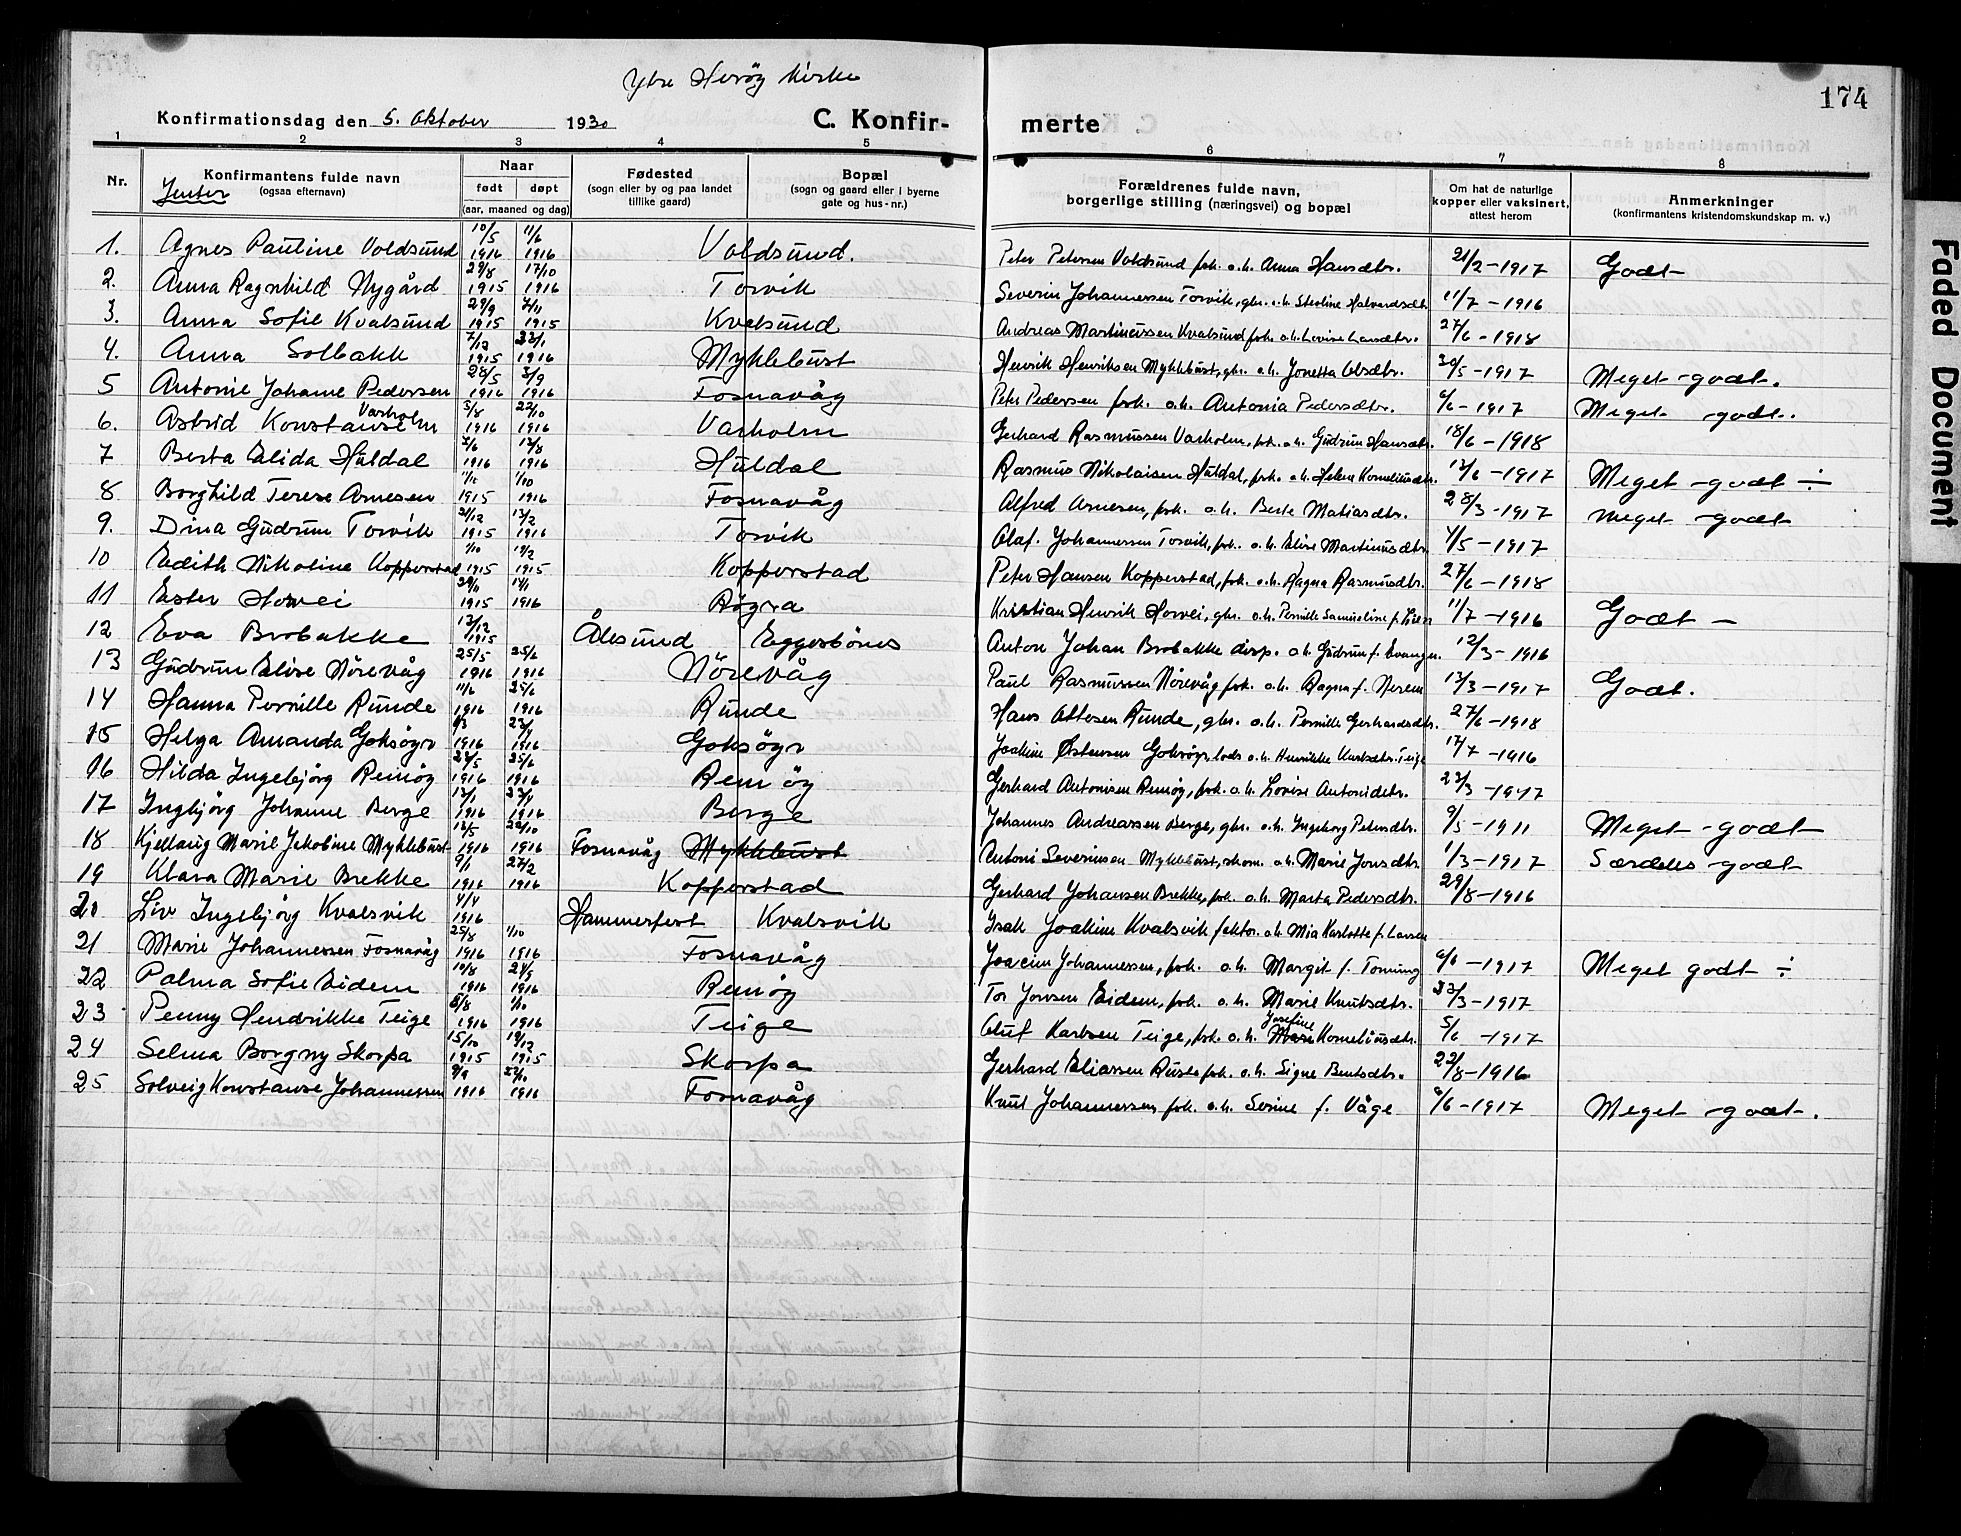 Ytre Herøy kirke
174
Konfirmationsdag den 5. Oktober 1930
C. Konfir-
merte
1 2 3 4 5 6 7 8
Nr.
Konfirmantens fulde navn
(ogsaa efternavn)
Jenter
Naar
født døpt
(aar, maaned og dag)
Fødested
(sogn eller by og paa landet
tillike gaard)
Bopæl
(sogn og gaard eller i byerne
gate og hus-nr.)
Forældrenes fulde navn,
borgerlige stilling (næringsvei) og bopæl
Om hat de naturlige
kopper eller vaksinert,
attest herom
Anmerkninger
(konfirmantens kristendomskundskap m. v.)
1. Agnes Pauline Voldsund 10/5 1916 11/6 1916 Voldsund. Peter Petersen Voldsund fisk. o.h. Anna Hansdtr. 21/2-1917 Godt
2. Anna Ragnhild Nygård 29/8 1915 17/10 1916 Torvik Severin Johannessen Torvik, gbr. o.h. Steoline Halvardsdtr. 11/7-1916
3. Anna Sofie Kvalsund 29/9 1915 7/11 1915 Kvalsund Andreas Martinussen Kvalsund fisk. o.h. Lovise Larsdtr. 27/6-1918
4. Anna Solbakk 7/12 1915 23/1 1916 Myklebust Henrik Henriksen Myklebust, gbr. o.h. Jonetta Olsdtr. 30/5-1917 Meget godt.
5 Antonie Johanne Pedersen 28/5 1916 3/9 1916 Fosnavåg Peter Pedersen fisk. o.h. Antonia Pedersdtr. 6/6-1917 Meget godt.
6. Astrid Konstanse Varholm 5/8 1916 22/10 1916 Varholm Gerhard Rasmussen Varholm, fisk. o.h. Gudrun Hansdtr. 18/6-1918
7 Berta Elida Huldal 2/6 1916 13/8 1916 Huldal Rasmus Nikolaisen Huldal, fisk. o.h. Helene Korneliusdtr. 12/6-1917 Meget godt ÷
8 Borghild Terese Arnesen 1915 1/10 1916 Fosnavåg Alfred Arnesen, fisk. o.h. Berte Matiasdtr. 28/3-1917 Meget godt
9. Dina Gudrun Torvik 21/12 1915 13/2 1916 Torvik Olaf Johannessen Torvik, fisk. o.h. Elise Martinusdtr. 4/5-1917
10 Edith Nikoline Kopperstad 1/10 1915 1915 Kopperstad Peter Hansen Kopperstad, fisk. o.h. Ragna Rasmusdtr. 27/6-1918
11 Ester Horvei 29/11 1915 1916 Røyra Kristian Henrik Horvei, gbr. o.h. Pernille Samueline f. 11/7-1916 Godt -
12 Eva Brobakke 12/12 1915 Ålesund Eggesbönes Anton Johan Brobakke disp. o.h. Gudrun f. 12/3-1916
13 Gudrun Elise Nörevåg 25/5 1916 25/6 1916 Nörevåg Paul Rasmussen Nörevåg fisk. o.h. Ragna f. Nerem 13/3-1917 Godt.
14 Hanna Pernille Runde 11/6 1916 25/6 1916 Runde Hans Ottesen Runde, gbr. o.h. Pernille Gerhardsdtr. 27/6-1918
15 Helga Amanda Goksöyr 1/3 1916 23/4 1916 Goksöyr Joakim Østensen Goksöyr, lods o.h. Henrikke Karlsdtr. Teige 17/7-1916
16 Hilda Ingebjörg Remöy 22/5 1916 25/6 1916 Remöy Gerhard Antonisen Remöy, fisk. o.h. Lovise Antonidtr. 23/3-1917
17 Ingbjörg Johanne Berge 13/1 1916 23/4 1916 Berge Johannes Andreassen Berge, gbr. o.h. Ingeborg Petersdtr. 9/5-1911 Meget godt
18 Kjellaug Marie Jakobine Myklebust 13/5 1916 22/10 1916 Fosnavåg Myklebust Antoni Severinsen Myklebust, skom. o.h. Marie Jonsdtr. 1/3-1917 Særdeles godt
19 Klara Marie Brekke 9/1 1916 27/2 1916 Kopperstad Gerhard Johansen Brekke, fisk. o.h. Marta Pedersdtr. 29/8-1916
20 Liv Ingebjörg Kvalsvik 4/4 1916 Hammerfest Kvalsvik Isak Joakim Kvalsvik faktor o.h. Mia Karlotte f. Larsen
21 Marie Johannessen Fosnavåg 25/8 1916 1/10 1916 Fosnavåg Joacim Johannessen, fisk. o.h. Margit f. Toming 6/6-1917 Meget godt ÷
22 Palma Sofie Eidem 10/8 1916 24/9 1916 Remöy Tor Jonsen Eidem, fisk. o.h. Marie Knutsdtr. 23/3-1917
23 Penny Hendrikke Teige 8/8 1916 1/10 1916 Teige Oluf Karlsen Teige, fisk. o.h. Marie Josefine Korneliusdtr. 5/6-1917
24 Selma Borgny Skorpa 15/10 1915 19/12 1915 Skorpa Gerhard Eliassen fisk. o.h. Signe Bentsdtr. 22/8-1916
25 Solveig Konstanse Johannessen 9/9 1916 22/10 1916 Fosnavåg Knut Johannessen, fisk. o.h. Serine f. Våge 9/6-1917 Meget godt.
Faded Document